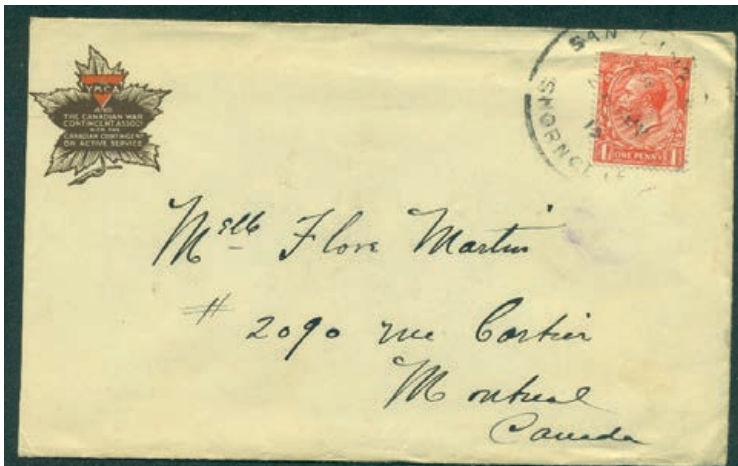 YMCA
AND
THE CANADIAN WAR
CONTINGENT ASSOCN
WITH THE
CANADIAN CONTINGENT
ON ACTIVE SERVICE
ONE PENNY
1 1
Mselle Flore Martin
# 2090 rue Cartier
Montreal
Canada